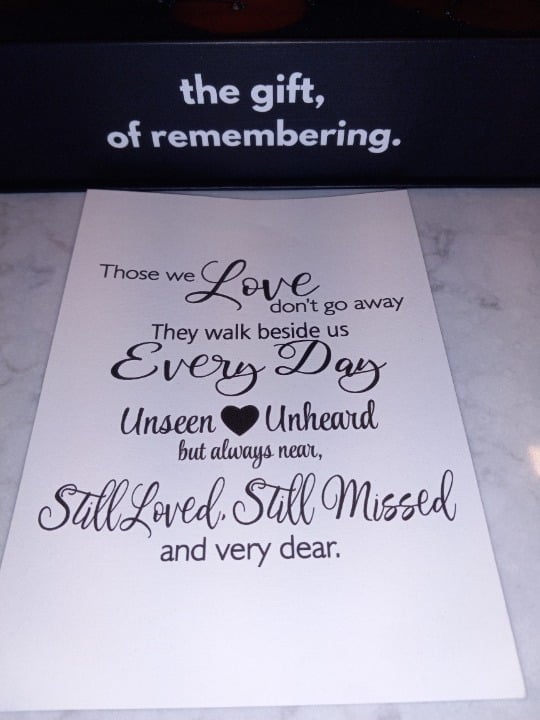 the gift,
of remembering.
Those we Love
don't go away
They walk beside us
Every Day
Unseen ♥ Unheard
but always near,
Still Loved, Still Missed
and very dear.